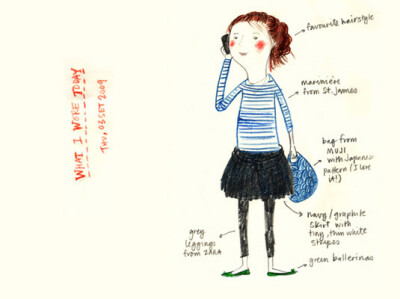 WHAT I WORE TODAY
THU, 03 SET 2009
favourite hairstyle
marinière
from St. James
bag from
MUJI
with Japanese
pattern (I love
it!)
navy/graphite
skirt with
tiny, thin white
stripes
grey
leggings
from ZARA
green ballerinas